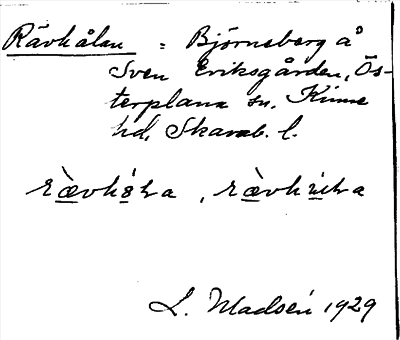 Rävhålan = Björnsberg å
Sven Eriksgården, Ös-
terplana sn, Kinne
hd, Skarab. l.
rävhåla, rävhåla
L. Madsén 1929